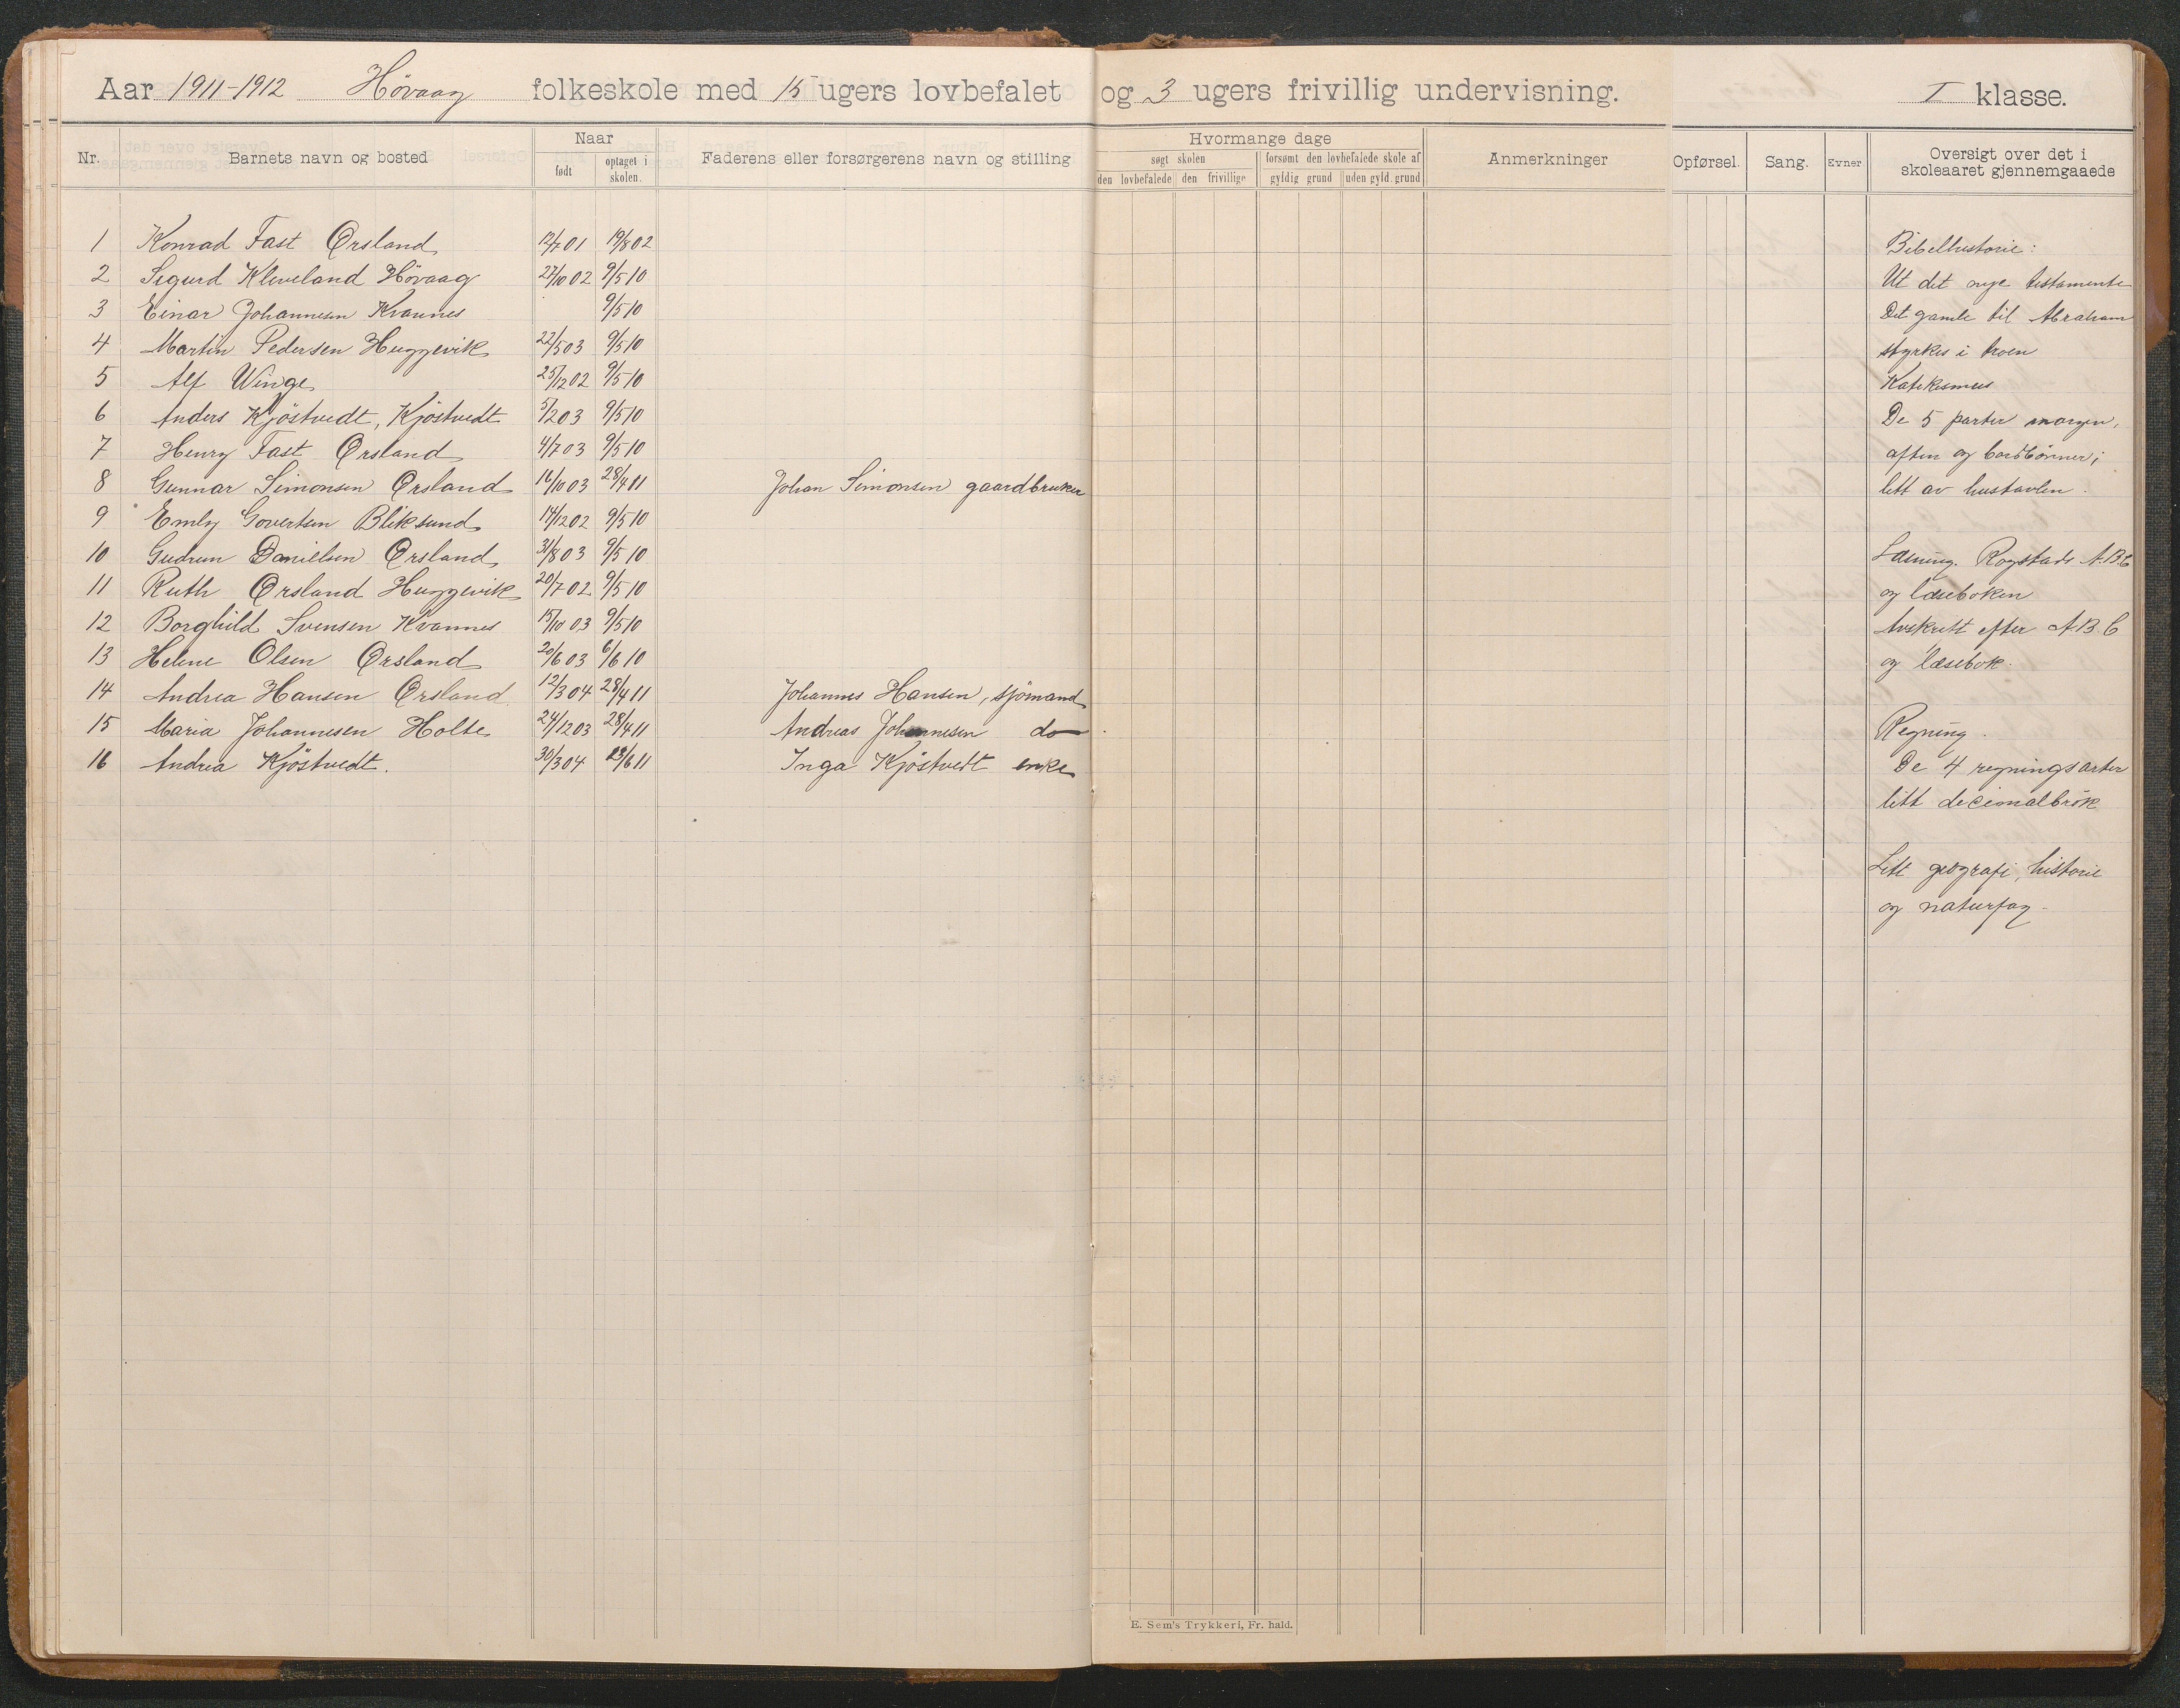 Aar 1911-1912 Høvaag folkeskole med 15 ugers lovbefalet og 3 ugers frivillig undervisning. I klasse.
Nr. Barnets navn og bosted Naar født optaget i skolen. Faderens eller forsørgerens navn og stilling Hvormange dage søgt skolen den lovbefalede den frivillige forsømt den lovbefalede skole af gyldig grund uden gyld. grund Anmerkninger Opførsel. Sang. Evner Oversigt over det i skoleaaret gjennemgaaede
1 Konrad Fast Ørsland 12/7 01 19/8 02
2 Sigurd Kleveland Høvaag 27/10 02 9/5 10
3 Einar Johannesen Kvannes 9/5 10
4 Martin Pedersen Huggevik 22/5 03 9/5 10
5 Alf Winge 25/12 02 9/5 10
6 Anders Kjöstvedt, Kjöstvedt 5/2 03 9/5 10
7 Henry Fast Ørsland 4/7 03 9/5 10
8 Gunnar Simonsen Ørsland 16/10 03 28/4 11 Johan Simonsen gaardbruker
9 Emly Govertsen Bliksund 14/12 02 9/5 10
10 Gudrun Danielsen Ørsland 31/8 03 9/5 10
11 Ruth Ørsland Huggevik 20/7 02 9/5 10
12 Borghild Svensen Kvannes 15/10 03 9/5 10
13 Helene Olsen Ørsland 20/6 03 6/6 10
14 Andrea Hansen Ørsland 12/3 04 28/4 11 Johannes Hansen, sjömand
15 Maria Johannesen Holte 24/12 03 28/4 11 Andreas Johannesen do
16 Andrea Kjöstvedt. 30/3 04 23/6 11 Inga Kjöstvedt enke
Bibelhistorie:
Ut det nye testamente
Det gamle til Abraham
styrkes i troen
Katekismus
De 5 parter morgen,
aften og bordbønner;
litt av hustavlen.
Læsning. Rogstads A.B.C
og læseboken
Avskrift efter A.B.C
og læsebok.
Regning.
De 4 regningsarter
litt decimalbrök
Litt geografi, historie
og naturfag.
E. Sem's Trykkeri, Fr. hald.